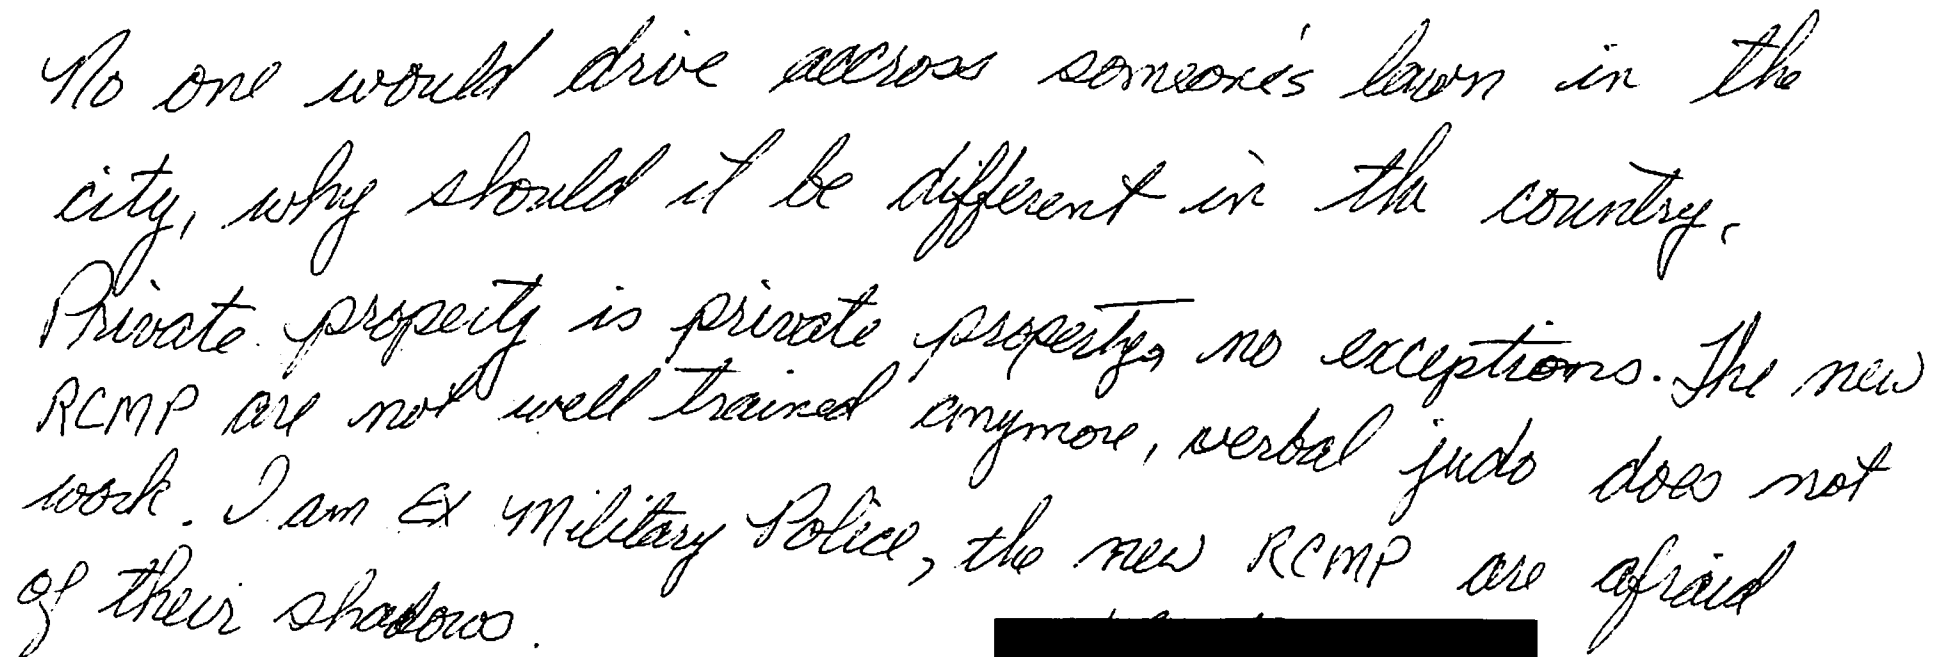 No one would drive accross someone's lawn in the
city, why should it be different in the country.
Private property is private property, no exceptions. The new
RCMP are not well trained anymore, verbal judo does not
work. I am Ex Military Police, the new RCMP are afraid
of their shadows.